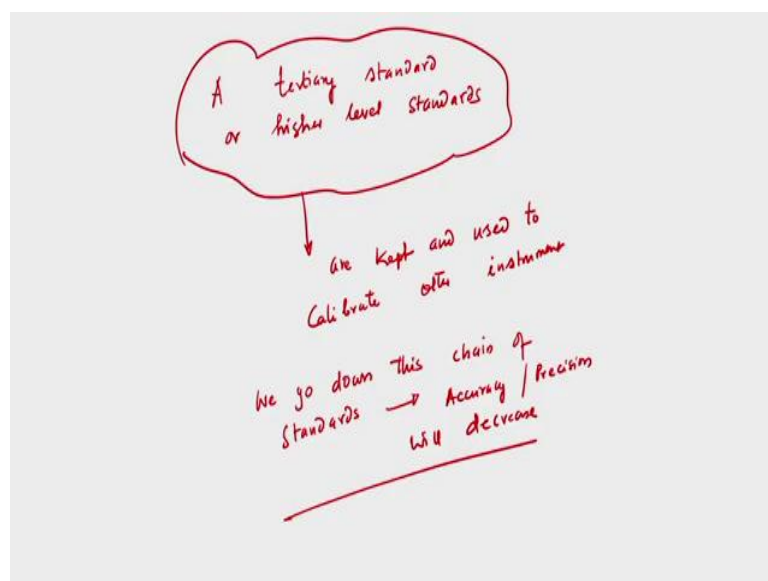 A tertiary standard
or higher level standards
are kept and used to
Calibrate other instrument
We go down this chain of
Standards → Accuracy / Precision
will decrease